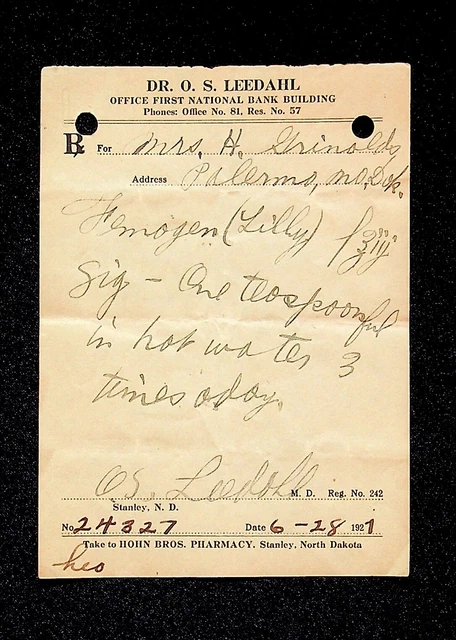 DR. O. S. LEEDAHL
OFFICE FIRST NATIONAL BANK BUILDING
Phones: Office No. 81, Res. No. 57
℞ For Mrs. H. Grinolds
Address Palermo, No. Dak.
Femogen (Lilly) f℥iij
Sig — One teaspoonful
in hot water 3
times a day.
O.S. Leedahl M. D. Reg. No. 242
Stanley, N. D.
No. 24327 Date 6-28 1921
Take to HOHN BROS. PHARMACY. Stanley, North Dakota